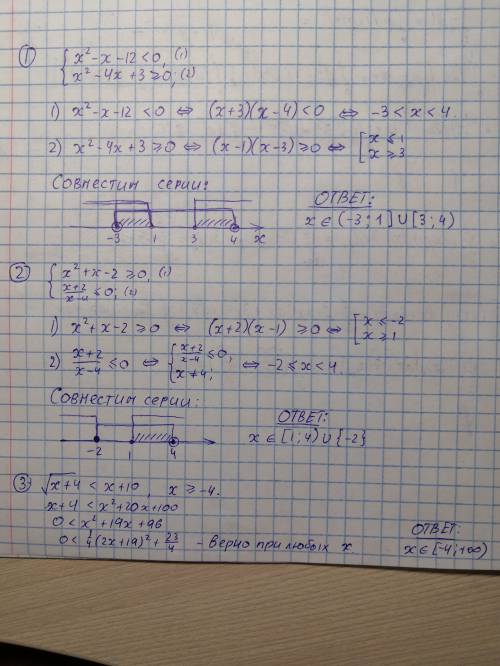 1
{ x² - x - 12 < 0, (1)
x² - 4x + 3 ≥ 0; (2)
1) x² - x - 12 < 0 ⇔ (x+3)(x-4) < 0 ⇔ -3 < x < 4.
2) x² - 4x + 3 ≥ 0 ⇔ (x-1)(x-3) ≥ 0 ⇔ [ x ≤ 1
x ≥ 3
Совместим серии:
ОТВЕТ:
x ∈ (-3; 1] ∪ [3; 4)
-3 1 3 4 x
2
{ x² + x - 2 ≥ 0, (1)
(x+2)/(x-4) ≤ 0; (2)
1) x² + x - 2 ≥ 0 ⇔ (x+2)(x-1) ≥ 0 ⇔ [ x ≤ -2
x ≥ 1
2) (x+2)/(x-4) ≤ 0 ⇔ { (x+2)/(x-4) ≤ 0,
x ≠ 4;
⇔ -2 ≤ x < 4.
Совместим серии:
ОТВЕТ:
x ∈ [1; 4) ∪ {-2}
-2 1 4
3) √x+4 < x+10, x ≥ -4.
x+4 < x² + 20x + 100
0 < x² + 19x + 96
0 < 1/4 (2x+19)² + 23/4 - Верно при любых x.
ОТВЕТ:
x ∈ [-4; +∞)